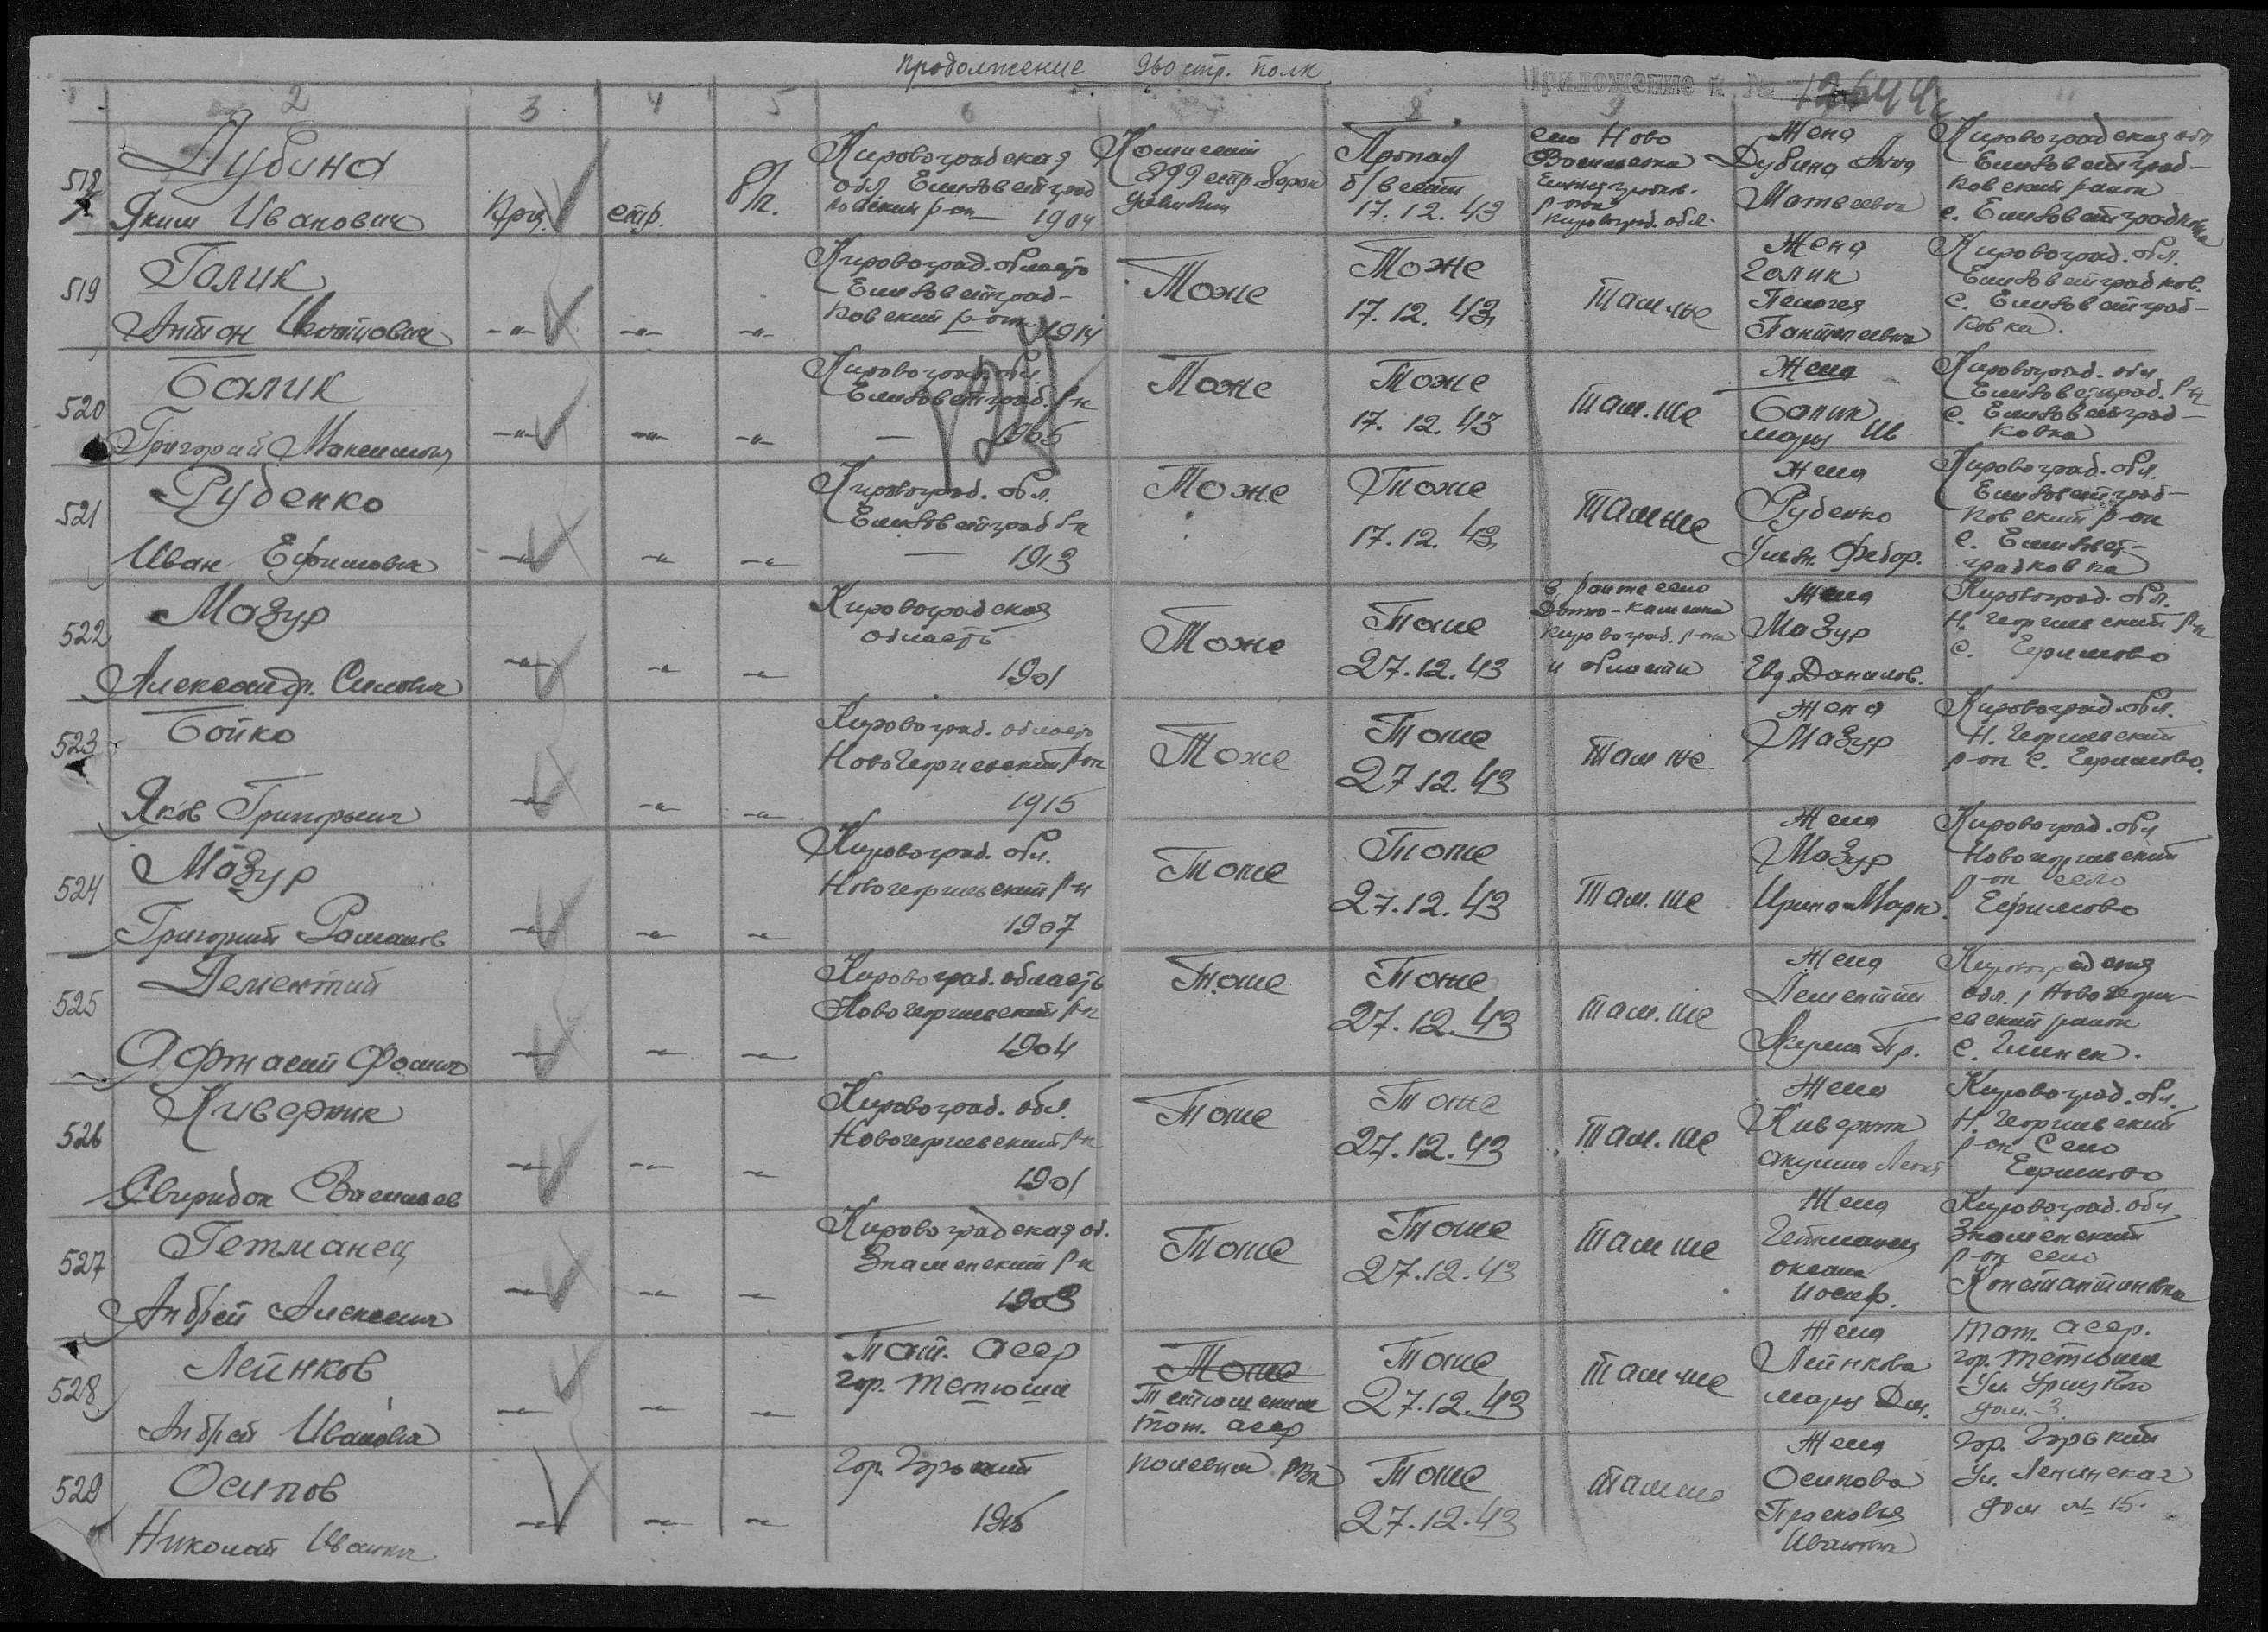 Продолжение 960 стр. полк
Приложение к № 12644с
2 3 4 5 6 8 9
518 Дубина
Яким Иванович
Кр-ц стр. б/п.
Кировоградская
обл Елизоветград
ковский р-он 1904
Комиссией
299 стр
дивизии
Пропал
б/вести
17.12.43
село Ново
р-она
Кировоград. обл.
Жена
Дубина
Матвеевна
Кировоградская обл
Елизоветград-
ковский район
с. Елизоветградковка
519 Голик
Антон
-"- -"- -"-
Кировоград. область
Елизоветград-
ковский р-он 1914
Тоже
Тоже
17.12.43
Там же
Жена
Голик
Пелогея
Пантелеевна
Кировоград. обл.
Елизоветградков.
с. Елизоветград-
ковка.
520 Балик
Григорий Максимович
-"- -"- -"-
Кировоград. обл.
Елизоветград. р-н
1905
Тоже
Тоже
17.12.43
Там же
Жена
Балик
Мария Ив
Кировоград. обл
Елизоветград. р-н
с. Елизоветград-
ковка
521 Руденко
Иван Ефимович
-"- -"- -"-
Кировоград. обл.
Елизоветград р-н
1913
Тоже
Тоже
17.12.43
Там же
Жена
Руденко
Ульян. Федор.
Кировоград. обл.
Елизоветград-
ковский р-он
с. Елизовет-
градковка
522 Мазур
Александр.
-"- -"- -"-
Кировоградская
область
1901
Тоже
Тоже
27.12.43
в районе село
Кировоград. р-она
и области
Жена
Мазур
Евд. Данилов.
Кировоград. обл.
Н. Георгиевский р-н
с. Ефимово
523 Бойко
Яков Григорьевич
-"- -"- -"-
Кировоград. область
НовоГеоргиевский р-он
1915
Тоже
Тоже
27.12.43
Там же
Жена
Мазур
Кировоград. обл.
Н. Георгиевский
р-он с. Ефимово.
524 Мазур
Григорий Романов
-"- -"- -"-
Кировоград. обл.
Новогеоргиевский р-н
1907
Тоже
Тоже
27.12.43
Там же
Жена
Мазур
Ирина Марк.
Кировоград. обл
Новогеоргиевский
р-он село
Ефимово
525 Дементий
Афтнасий Фомич
-"- -"- -"-
Кировоград. область
Новогеоргиевский р-н
1904
Тоже
Тоже
27.12.43
Там же
Жена
Дементий
Кировоградская
обл., Новогеорги-
евский район
с. Глинск.
526 Кивертник
Свиридон Васильев
-"- -"- -"-
Кировоград. обл.
Новогеоргиевский р-н
1901
Тоже
Тоже
27.12.43
Там же
Жена
Кировоград. обл.
Н. Георгиевский
р-он Село
Ефимово
527 Гетманец
Андрей Алексеевич
-"- -"- -"-
Кировоградская об.
Знаменский р-н
1903
Тоже
Тоже
27.12.43
Там же
Жена
Гетманец
Оксана
Иосиф.
Кировоград. обл
Знаменский
р-он село
Константиновка
528 Лейнков
Андрей Иванович
-"- -"- -"-
Тат. асср
гор. Тетюши
Тоже
Тетюшским
Тат. асср
Тоже
27.12.43
Там же
Жена
Лейнкова
Мария Дм.
Тат. асср.
гор. Тетюши
Ул. Урицкого
дом. 3.
529 Осипов
Николай Иванович
-"- -"- -"-
Гор. Горький
Полевым РВК
Тоже
27.12.43
Там же
Жена
Осипова
Прасковья
Ивановна
Гор. Горький
Ул. Ленинская
дом № 15.